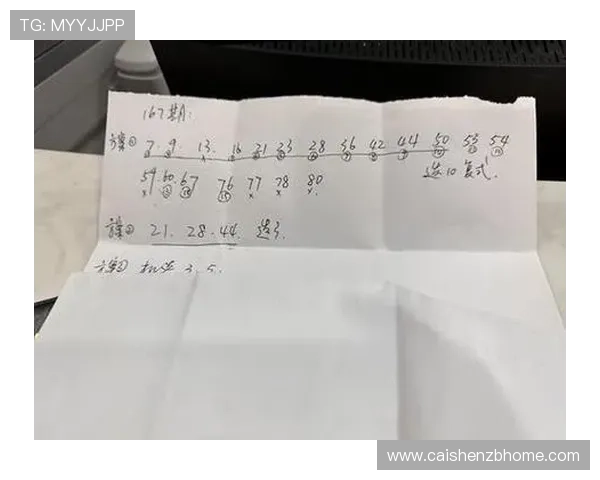 TG: MYYJJPP
167期:
方案① 7. 9. 13. 16 21 23 28 36 42 44 50 53 54
选10复式
59. 60. 67 76 77 78 80
方案② 21. 28. 44. 选3.
方案③ 3. 5.
www.caishenzbhome.com